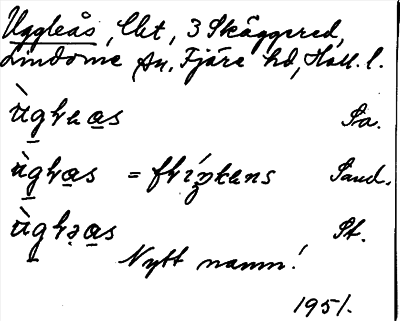 Uggleås, lht, 3 Skäggered,
Lindome sn, Fjäre hd, Hall. l.
ùghas Sa.
ùghas = Sand.
ùghas St.
Nytt namn!
1951.